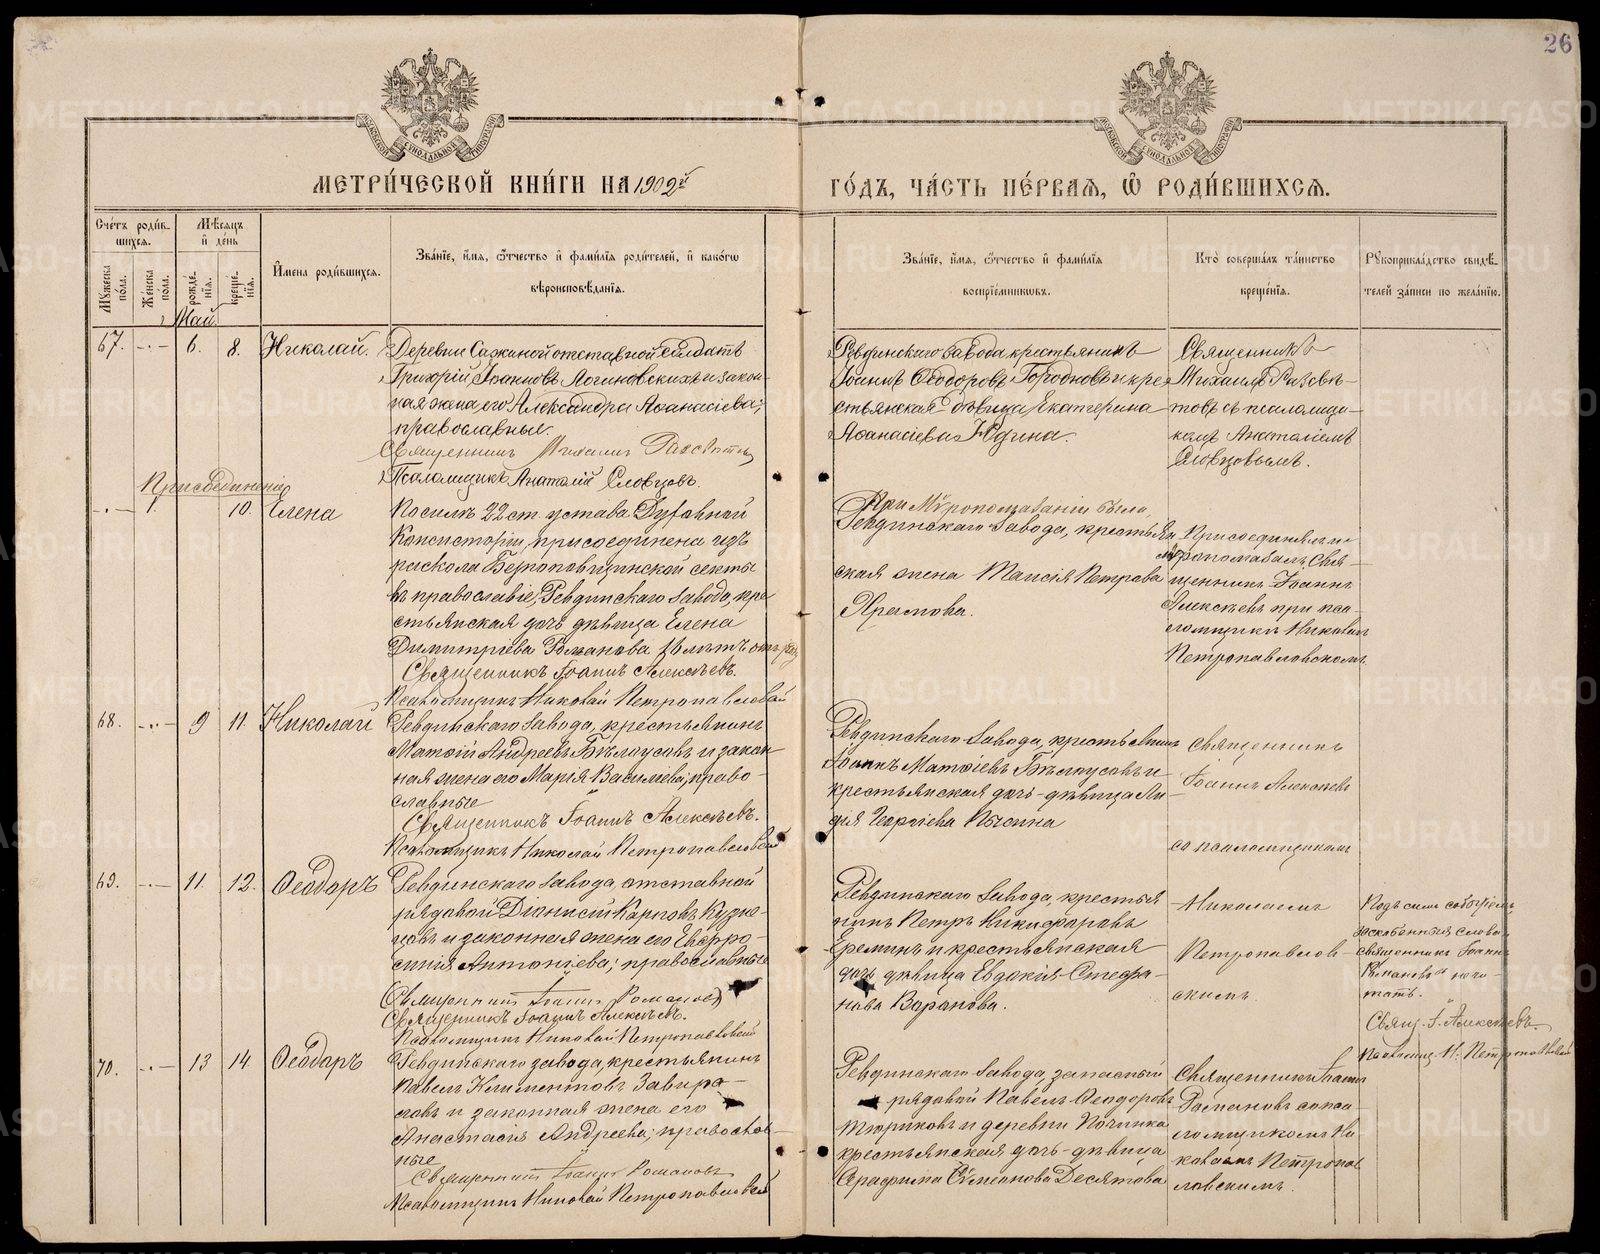 26
МОСКОВСКОЙ СѴНОДАЛЬНОЙ ТИПОГРАФІИ
МОСКОВСКОЙ СѴНОДАЛЬНОЙ ТИПОГРАФІИ
МЕТРИ́ЧЕСКОЙ КНИ́ГИ НА 1902й
ГО́ДЪ, ЧА́СТЬ ПЕ́РВАѦ, Ѡ҆ РОДИ́ВШИХСѦ.
Сче́тъ роди́в-
шихсѧ.
Мѣ́сѧцъ
и҆ де́нь
Мꙋ́жеска по́ла.
Же́нска по́ла.
рожде́-
нїѧ.
креще́-
нїѧ.
И҆мена̀ роди́вшихсѧ.
Зва́нїе, и҆́мѧ, ѻ҆́тчество и҆ фами́лїѧ роди́телей, и҆ како́гѡ
вѣроисповѣ́данїѧ.
Зва́нїе, и҆́мѧ, ѻ҆́тчество и҆ фами́лїѧ
воспрїе́мникѡвъ.
Кто̀ соверша́лъ та́инство
креще́нїѧ.
Рꙋкоприкла́дство свидѣ́-
телей за́писи по жела́нїю.
Май.
67. -„- 6. 8. Николай.
Деревни Сажиной отставной солдатъ
Григорій Іоанновъ Логиновскихъ и закон-
ная жена его Александра Аѳанасіева;
православные.
Священникъ Михаилъ
Псаломщикъ Анатолій Словцовъ.
Ревдинскаго завода крестьянинъ
Іоаннъ Ѳеодоровъ и кре-
стьянская дѣвица Екатерина
Аѳанасіева Юдина.
Священникъ
Михаилъ
товъ съ псаломщи-
комъ Анатоліемъ
Словцовымъ.
Присоединенія
-„- 1. 10. Елена
На силѣ 22 ст. устава Духовной
Консисторіи, присоединена изъ
раскола Безпоповщинской секты
въ православіе, Ревдинскаго завода, кре
стьянская дочь дѣвица Елена
Димитріева Романова
Священникъ Іоаннъ Алексѣевъ.
Псаломщикъ Николай Петропавловскій
При Мѵропомазаніи была,
Ревдинскаго завода, крестьян
ская жена Таисія Петрова
Храмова.
Присоединялъ и
мѵропомазалъ Свя-
щенникъ Іоаннъ
Алексѣевъ при пса-
ломщикѣ Николаѣ
Петропавловскомъ.
68. -„- 9 11. Николай
Ревдинскаго завода, крестьянинъ
Матѳій Андреевъ Бѣлоусовъ и закон
ная жена его Марія Василіева; право-
славные
Священникъ Іоаннъ Алексѣевъ.
Псаломщикъ Николай Петропавловскій
Ревдинскаго завода, крестьянинъ
Іоаннъ Матѳіевъ Бѣлоусовъ и
крестьянская дочь-дѣвица Ли
дія Георгіева
Священникъ
Іоаннъ Алексѣевъ
со псаломщикомъ
69. -„- 11. 12. Ѳеодоръ
Ревдинскаго завода, отставной
рядовой Діонисій Карповъ Кузне-
цовъ и законная жена его Евфро-
синія Антоніева; православные
(Священникъ Іоаннъ Романовъ)
Священникъ Іоаннъ Алексѣевъ.
Псаломщикъ Николай Петропавловскій
Ревдинскаго завода, крестья
нинъ Петръ Никифоровъ
Ереминъ и крестьянская
дочь дѣвица Евдокія Стефа-
нова Баранова.
Николаемъ
Петропавлов-
скимъ.
Подъ симъ событіемъ
заскобленныя слова
„священникъ Іоаннъ
Романовъ" не чи-
тать.
Свящ. І. Алексѣевъ.
Псаломщ. Н. Петропавловскій
70. -„- 13 14. Ѳеодоръ
Ревдинскаго завода, крестьянинъ
Павелъ Климентовъ
новъ и законная жена его
Анастасія Андреева; православ-
ные
Священникъ Іоаннъ Романовъ
Псаломщикъ Николай Петропавловскій
Ревдинскаго завода, запасный
рядовой Павелъ Ѳеодоровъ
Тюриковъ и деревни Починка
крестьянская дочь-дѣвица
Серафима Симеонова Десятова
Священникъ Іоаннъ
Романовъ со пса-
ломщикомъ Ни
колаемъ Петропав
ловскимъ.
METRIKI.GASO-URAL.RU